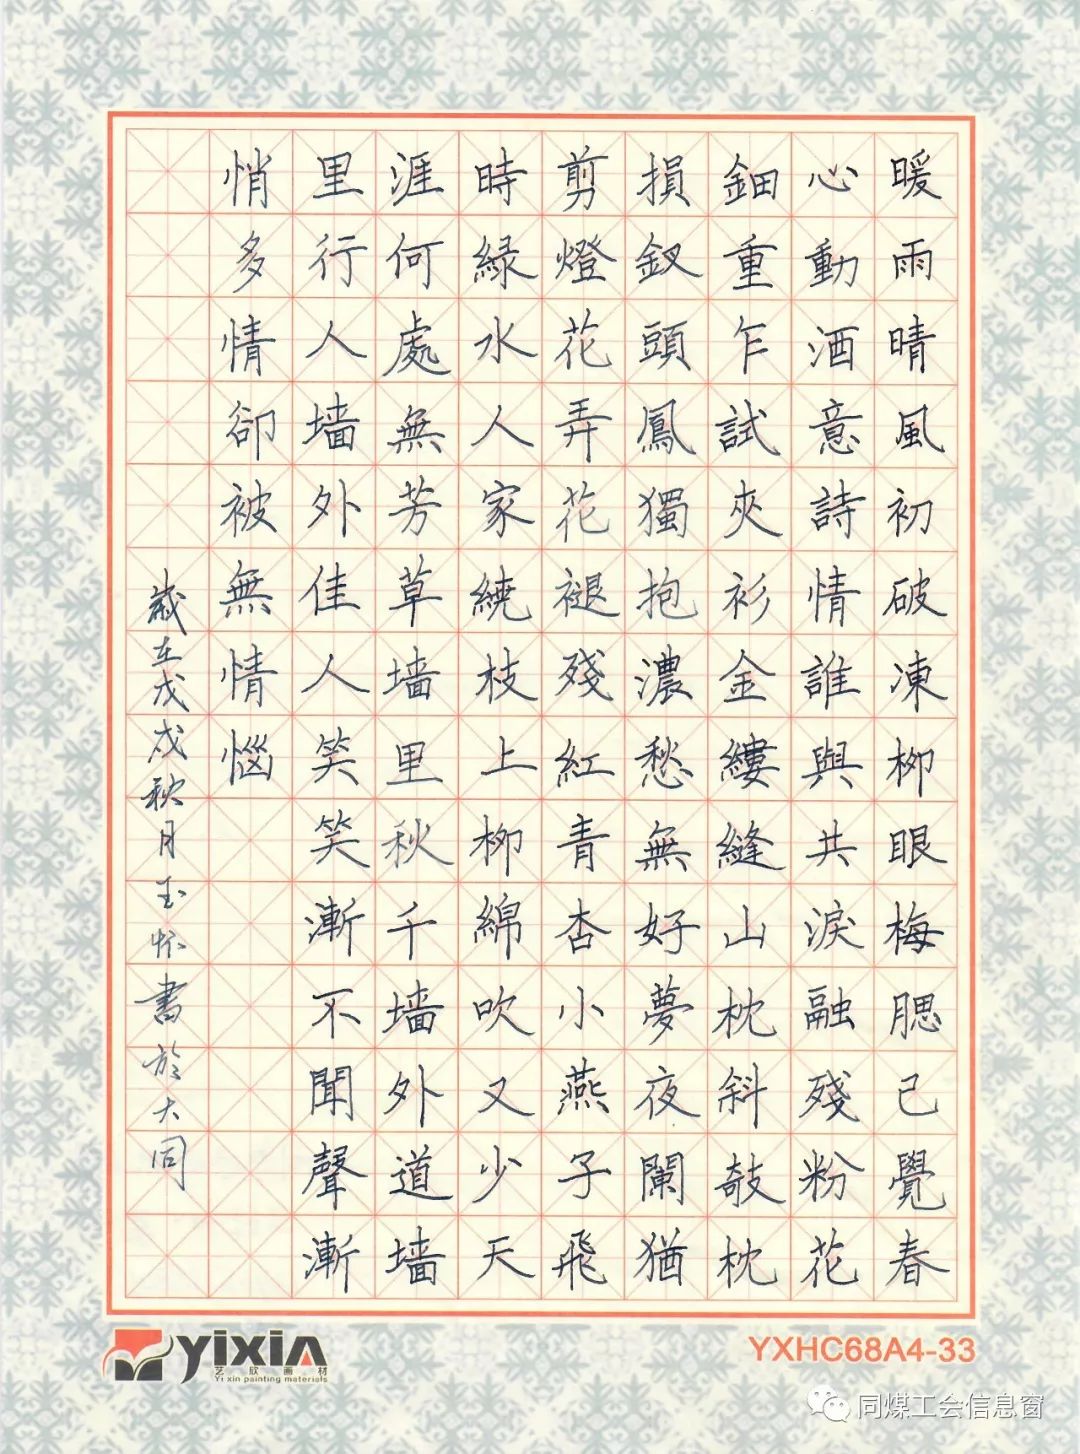 暖雨晴風初破凍柳眼梅腮已覺春
心動酒意詩情誰與共淚融殘粉花
鈿重乍試夾衫金縷縫山枕斜敧枕
損釵頭鳳獨抱濃愁無好夢夜闌猶
剪燈花弄花褪殘紅青杏小燕子飛
時緑水人家繞枝上柳綿吹又少天
涯何處無芳草墙里秋千墙外道墙
里行人墙外佳人笑笑漸不聞聲漸
悄多情卻被無情惱
歲在戊戌秋月玉怀書於大同
yixin
艺欣画材
Yi xin painting materials
YXHC68A4-33
同煤工会信息窗